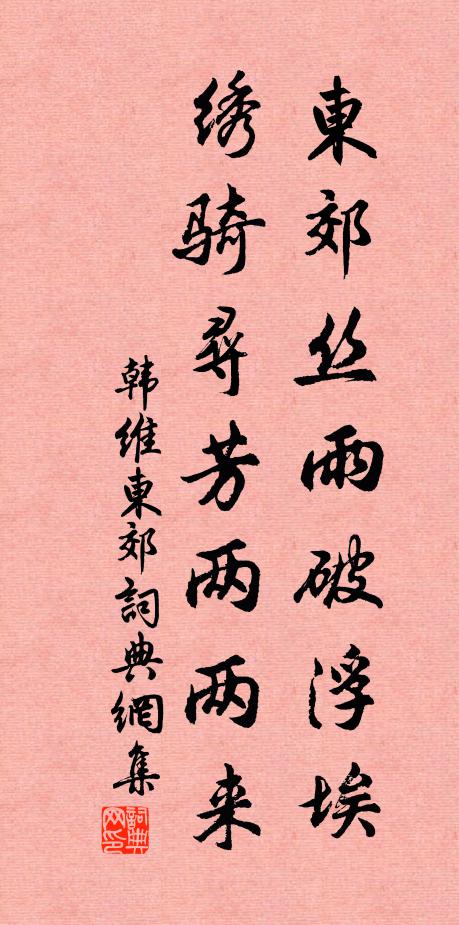 東郊丝雨破浮埃
绣骑尋芳两两来
韩維東郊詞典網集
詞典网印